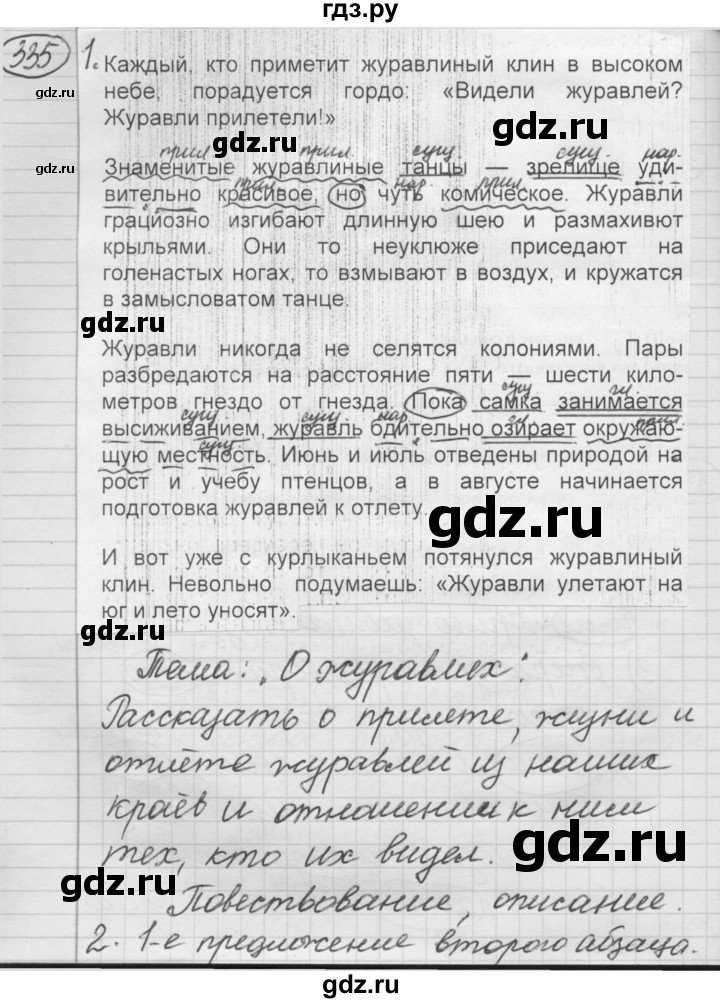 гдз.ру
335
1.
Каждый, кто приметит журавлиный клин в высоком
небе, порадуется гордо: «Видели журавлей?
Журавли прилетели!»
gdz.ru
gdz.ru
gdz.ru
прил. прил. сущ. сущ. нар.
Знаменитые журавлиные танцы — зрелище уди-
gdz.ru
прил. нар. прил.
вительно красивое, но чуть комическое. Журавли
грациозно изгибают длинную шею и размахивют
крыльями. Они то неуклюже приседают на
голенастых ногах, то взмывают в воздух, и кружатся
в замысловатом танце.
gdz.ru
gdz.ru
Журавли никогда не селятся колониями. Пары
разбредаются на расстояние пяти — шести кило-
сущ. гл.
метров гнездо от гнезда. Пока самка занимается
gdz.ru
сущ. сущ. нар. гл. прил.
высиживанием, журавль бдительно озирает окружаю-
сущ.
щую местность. Июнь и июль отведены природой на
рост и учебу птенцов, а в августе начинается
подготовка журавлей к отлету.
gdz.ru
gdz.ru
И вот уже с курлыканьем потянулся журавлиный
клин. Невольно подумаешь: «Журавли улетают на
юг и лето уносят».
gdz.ru
gdz.ru
Тема: „О журавлях".
Рассказать о прилете, жизни и
отлёте журавлей из наших
краёв и отношении к ним
gdz.ru
тех, кто их видел.
gdz.ru
Повествование, описание.
2. 1-е предложение второго абзаца.
gdz.ru
gdz.ru